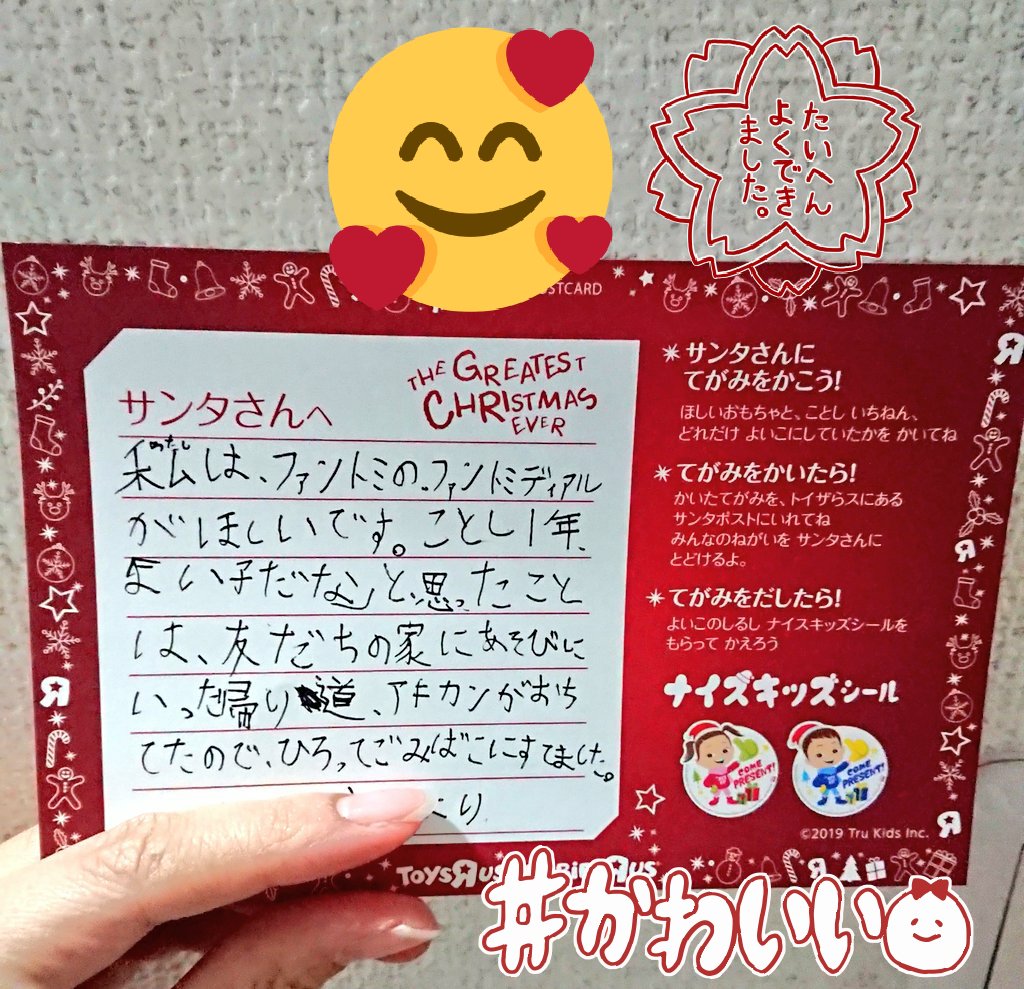 たいへん
よくでき
ました。
POSTCARD
THE GREATEST
CHRISTMAS
EVER
サンタさんへ
わたし
私は、ファントミの、ファントミディアル
がほしいです。ことし1年、
よい子だな」と、思ったこと
は、友だちの家にあそびに
いった帰り道、アキカンがおち
てたので、ひろってごみばこにすてました。
こり
サンタさんに
てがみをかこう!
ほしいおもちゃと、ことし いちねん、
どれだけ よいこにしていたかを かいてね
てがみをかいたら!
かいたてがみを、トイザらスにある
サンタポストにいれてね
みんなのねがいを サンタさんに
とどけるよ。
てがみをだしたら!
よいこのしるし ナイスキッズシールを
もらって かえろう
ナイスキッズシール
COME
PRESENT!
COME
PRESENT!
©2019 Tru Kids Inc.
TOYSЯUS
#かわいい